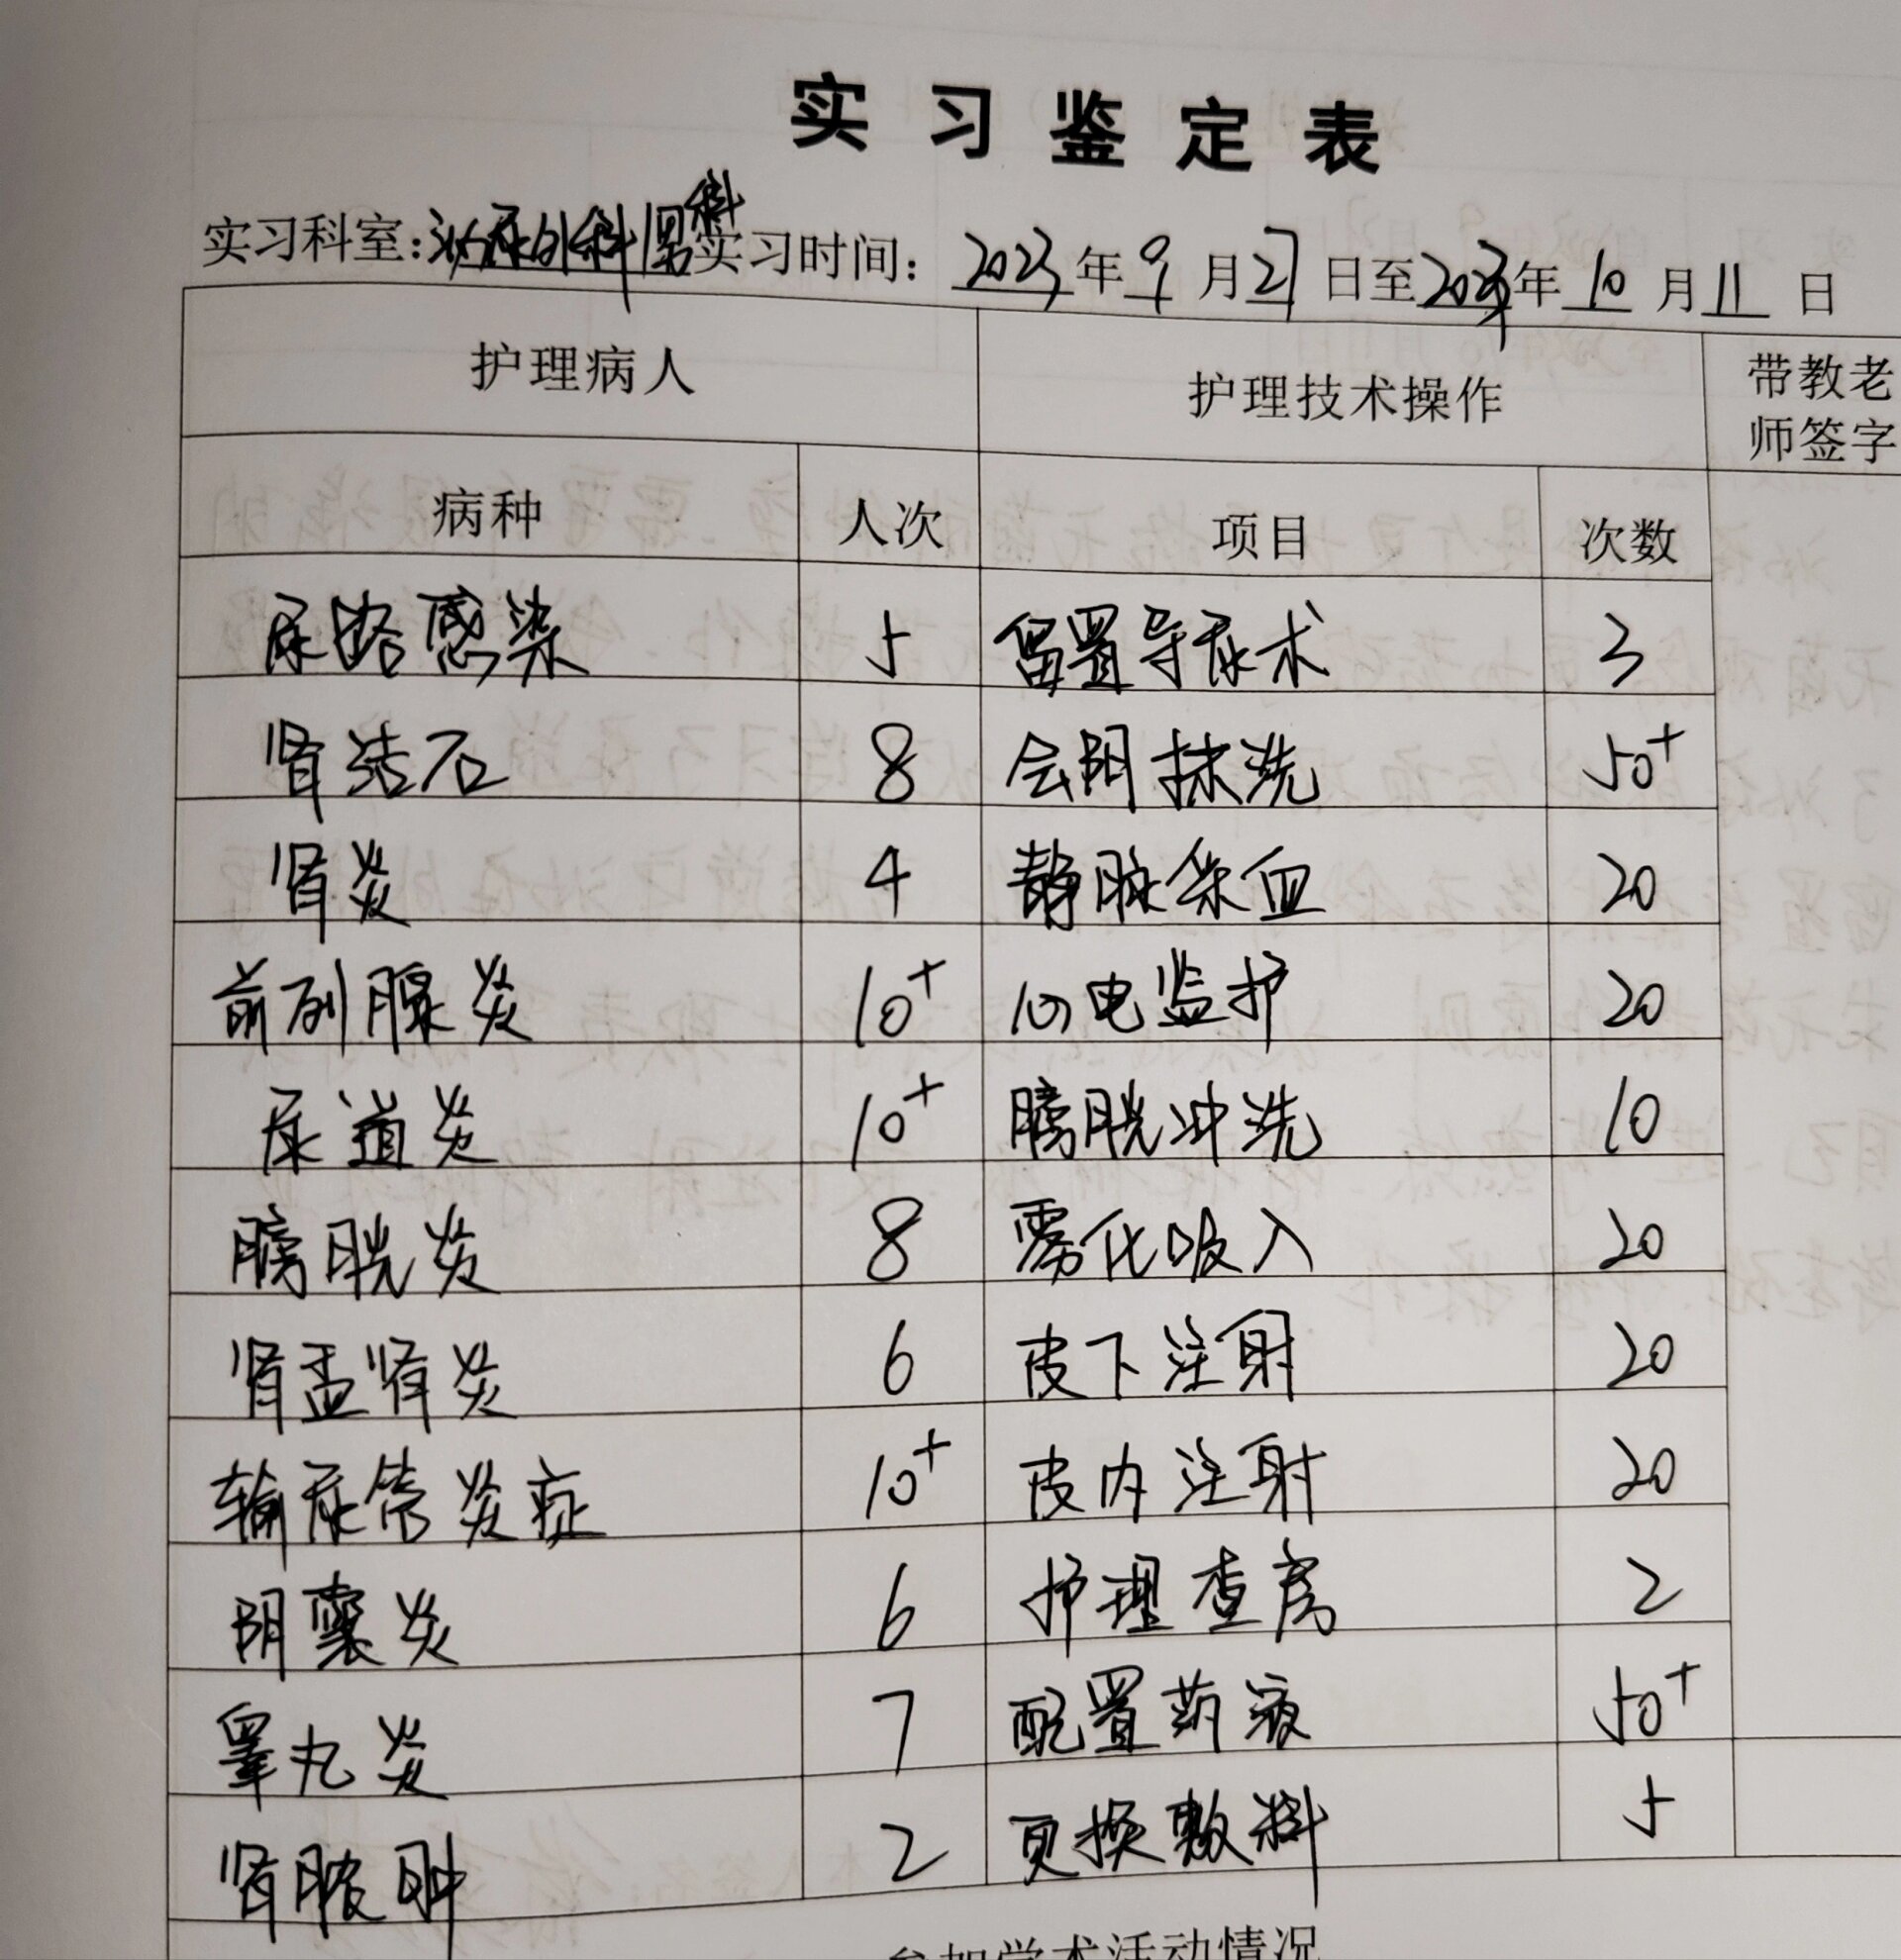 实习鉴定表
实习科室：泌尿外科男科 实习时间：2023年9月27日至2023年10月11日
护理病人 护理技术操作 带教老师签字
病种 人次 项目 次数
尿路感染 5 留置导尿术 3
肾结石 8 会阴抹洗 50+
肾炎 4 静脉采血 20
前列腺炎 10+ 心电监护 20
尿道炎 10+ 膀胱冲洗 10
膀胱炎 8 雾化吸入 20
肾盂肾炎 6 皮下注射 20
输尿管炎症 10+ 皮内注射 20
阴囊炎 6 护理查房 2
睾丸炎 7 配置药液 50+
肾脓肿 2 更换敷料 5
参加学术活动情况